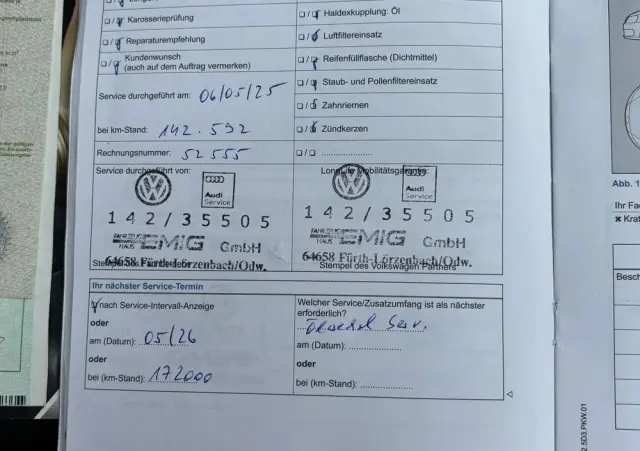 Karosserieprüfung
Reparaturempfehlung
Kundenwunsch
(auch auf dem Auftrag vermerken)
Service durchgeführt am: 06/05/25
bei km-Stand: 142.592
Rechnungsnummer: 52555
Haldexkupplung: Öl
Luftfiltereinsatz
Reifenfüllflasche (Dichtmittel)
Staub- und Pollenfiltereinsatz
Zahnriemen
Zündkerzen
Service durchgeführt von:
Audi
Service
142/35505
FAHRZEUG
HAUS EMIG GmbH
64658 Fürth-Lörzenbach/Odw.
Audi
Service
142/35505
FAHRZEUG
HAUS EMIG GmbH
64658 Fürth-Lörzenbach/Odw.
Stempel des Volkswagen Partners
Ihr nächster Service-Termin
nach Service-Intervall-Anzeige
oder
am (Datum): 05/26
oder
bei (km-Stand): 172000
Welcher Service/Zusatzumfang ist als nächster
erforderlich?
am (Datum):
oder
bei (km-Stand):
Abb. 1
Ihr Fa
Krat
Besch
2.5D3.PKW.01